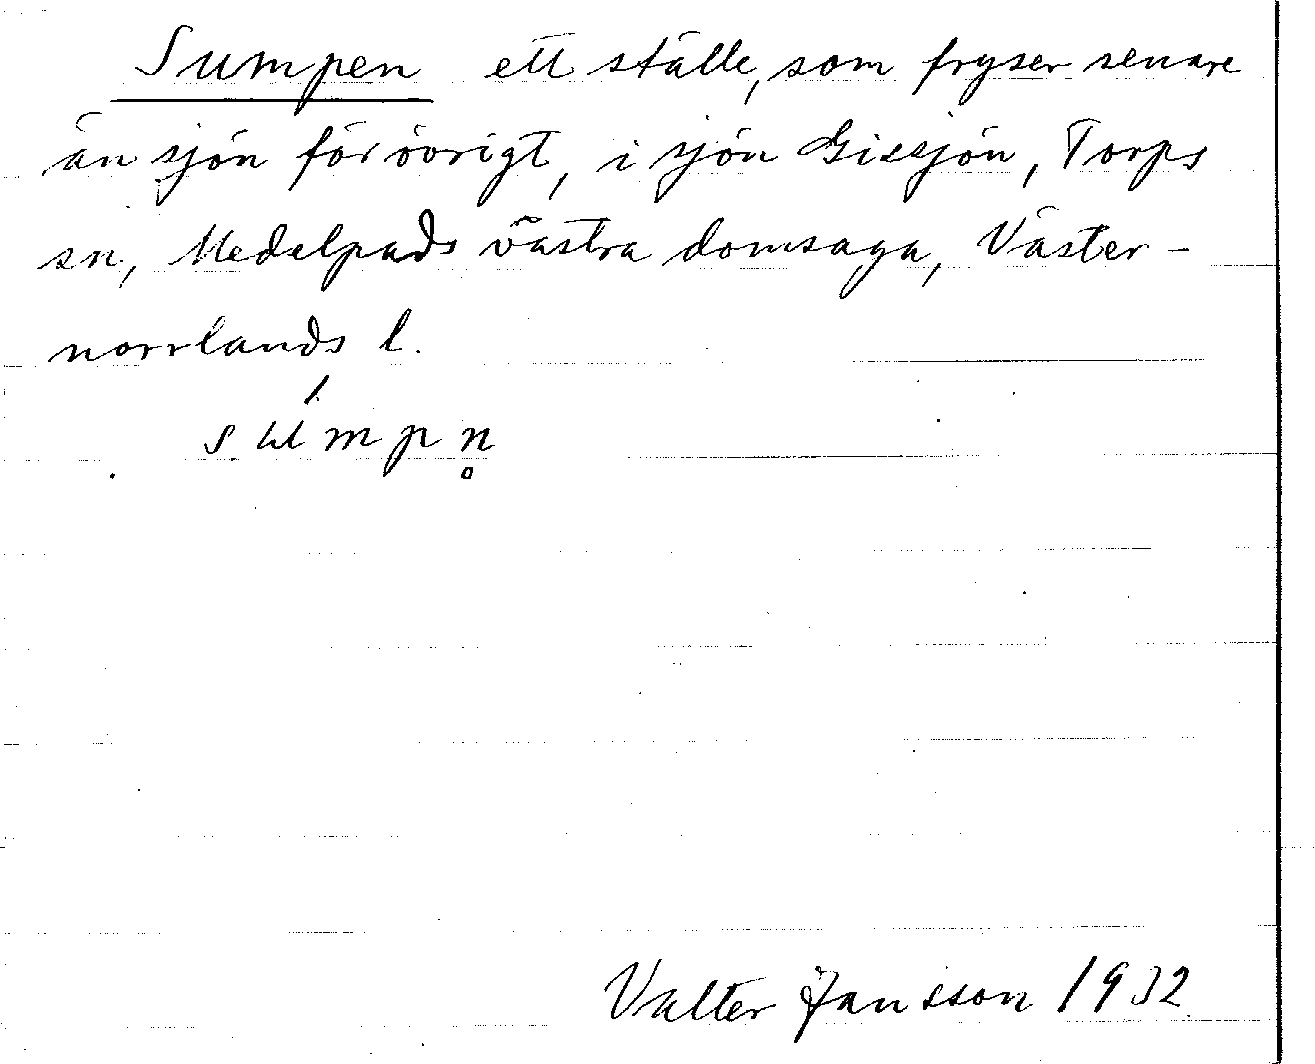 Sumpen ett ställe, som fryser senare
än sjön för övrigt, i sjön Gissjön, Torps
sn, Medelpads västra domsaga, Väster-
norrlands l.
súmpn̥
Valter Jansson 1932